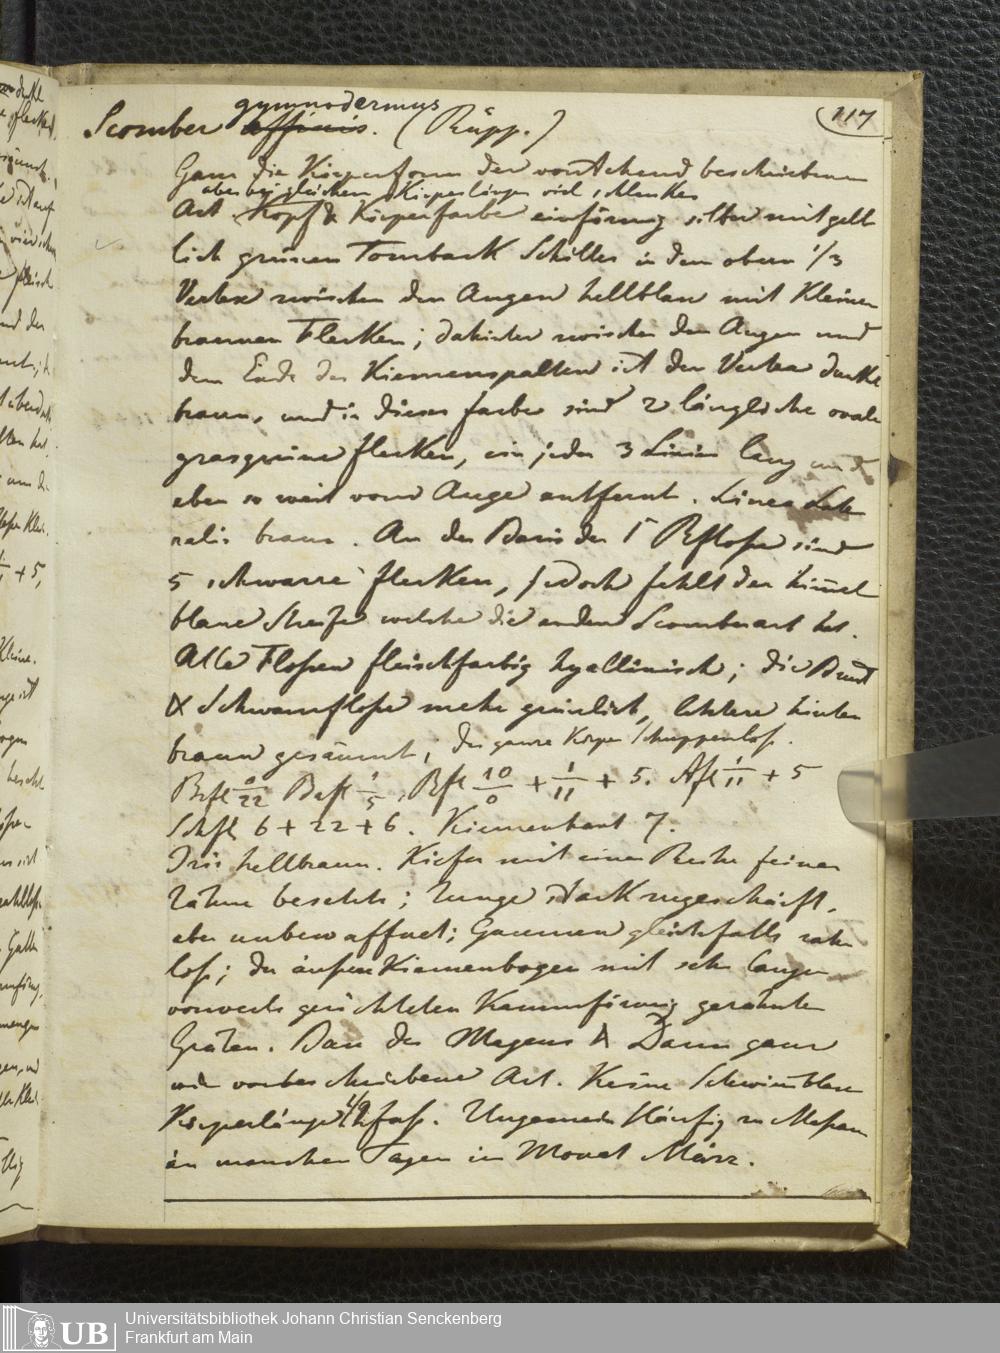 117
gymnodermus
Scomber affinis. (Rüpp.)
Ganz die Körperform der vorstehend beschriebenen
aber bei gleichen Körperlängen viel schlanker
Art. Kopf & Körperfarbe einförmig silber mit gelb
lich grünen Tomback Schiller in dem obern 1/3
Vertex zwischen den Augen hellblau mit kleinen
braunen Flecken; dahinter zwischen den Augen und
dem Ende der Kiemenspalten ist der Vertex dunkel
braun, und in dieser farbe sind 2 längliche ovale
grasgrüne flecken, ein jeder 3 Linien lang und
eben so weit vom Auge entfernt. Linea Late
ralis braun. An der Basis der 1 Rflosse sind
5 schwarze flecken, jedoch fehlt der himel
blaue Streife welche die andere Scomberart hat.
Alle Flossen fleischfarbig hyallinisch; die Brust
& Schwanzflosse mehr grünlich, letztere hinten
braun gesäumt; der ganze Körper schuppenlos.
Brfl 0/22 Bafl 1/5, Rfl 10/0 + 1/11 + 5. Afl 1/11 + 5
Schfl 6 + 22 + 6. Kiemenhaut 7.
Iris hellbraun. Kiefer mit einer Reihe feiner
Zähne besetzt; Zunge stark zugeschärft,
aber unbewaffnet; Gaumen gleichfalls zahn
los; der äussere Kiemenbogen mit sehr langen
vorwerts gerichteten Kammförmig gezähnten
Gräten. Bau des Magens & Darm ganz
wie vorbeschriebene Art. Keine Schwimblase
Körperlänge 1/2 fuss. Ungemein Häufig zu Massaua
an manchen Tagen im Monat März.
Universitätsbibliothek Johann Christian Senckenberg
Frankfurt am Main
UB